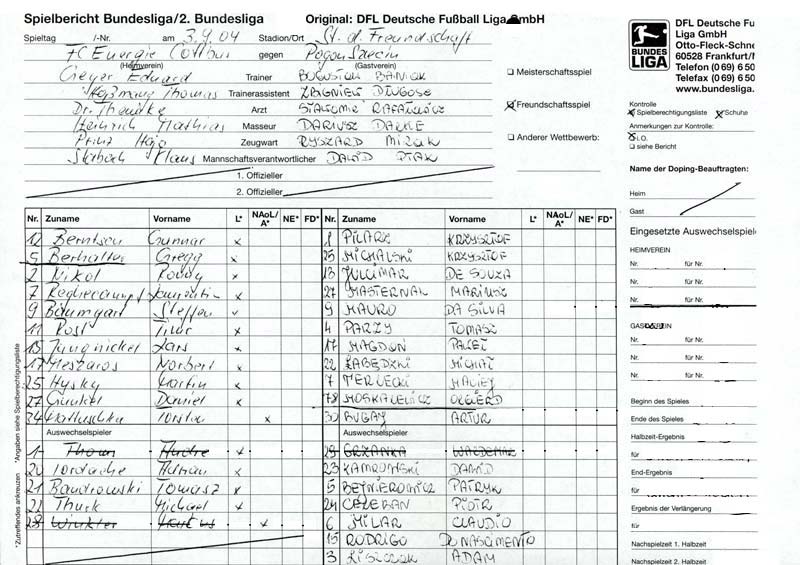 Spielbericht Bundesliga/2. Bundesliga
Original: DFL Deutsche Fußball Liga GmbH
Spieltag /-Nr. am 3.4.04 Stadion/Ort St. d. Freundschaft
FC Energie Cottbus gegen Pogon Szecin
(Heimverein) (Gastverein)
Geyer Eduard Trainer BOGUSŁAW BANIAK
Thomas Trainerassistent ZBIGNIEW DŁUGOSZ
Dr. Themke Arzt RAFAŁOWICZ
Heinrich Mathias Masseur DARIUSZ
Prinz Hajo Zeugwart RYSZARD MIZAK
Klaus Mannschaftsverantwortlicher DAWID PTAK
1. Offizieller
2. Offizieller
Meisterschaftsspiel
Freundschaftsspiel
Anderer Wettbewerb:
BUNDES
LIGA
DFL Deutsche Fu
Liga GmbH
Otto-Fleck-Schne
60528 Frankfurt/
Telefon (0 69) 6 50
Telefax (0 69) 6 50
www.bundesliga.
Kontrolle
Spielberechtigungsliste Schuhe
Anmerkungen zur Kontrolle:
i.O.
siehe Bericht
Name der Doping-Beauftragten:
Heim
Gast
Nr. Zuname Vorname L* NAoL/A* NE* FD* Nr. Zuname Vorname L* NAoL/A* NE* FD*
12 Berntsen Gunnar x 1 PILARZ KRZYSZTOF
5 Berhalter Gregg x 25 MICHALSKI KRZYSZTOF
2 Nikol Rocco x 13 JULCIMAR DE SOUZA
7 x 27 MASTERNAK MARIUSZ
9 Baumgart Steffen x 9 MAURO DA SILVA
11 Rost Timo x 4 PARZY TOMASZ
15 Jungnickel Lars x 17 MAGDOŃ PAWEŁ
17 Meszaros Norbert x 22 ŁABĘDZKI MICHAŁ
25 Hysky Martin x 7 TERLECKI MACIEJ
27 Gunkel Daniel x 78 MOSKALEWICZ OLGIERD
24 Mattuschka Torsten x 30 BUGAJ ARTUR
Auswechselspieler Auswechselspieler
1 Thoms Andre x 29 GRZANKA WALDEMAR
20 Iordache Adrian x 23 KAMROWSKI DAWID
21 Bandrowski Tomasz x 5 BEJNIEROWICZ PATRYK
22 Thurk Michael x 24 CELEBAN PIOTR
28 Winkler x 6 MILAR CLAUDIO
15 RODRIGO DO NASCIMENTO
3 ADAM
*Zutreffendes ankreuzen *Angaben siehe Spielberechtigungsliste
Eingesetzte Auswechselspiele
HEIMVEREIN
Nr. für Nr.
Nr. für Nr.
Nr. für Nr.
GASTVEREIN
Nr. für Nr.
Nr. für Nr.
Nr. für Nr.
Beginn des Spieles
Ende des Spieles
Halbzeit-Ergebnis
für
End-Ergebnis
für
Ergebnis der Verlängerung
für
Nachspielzeit 1. Halbzeit
Nachspielzeit 2. Halbzeit